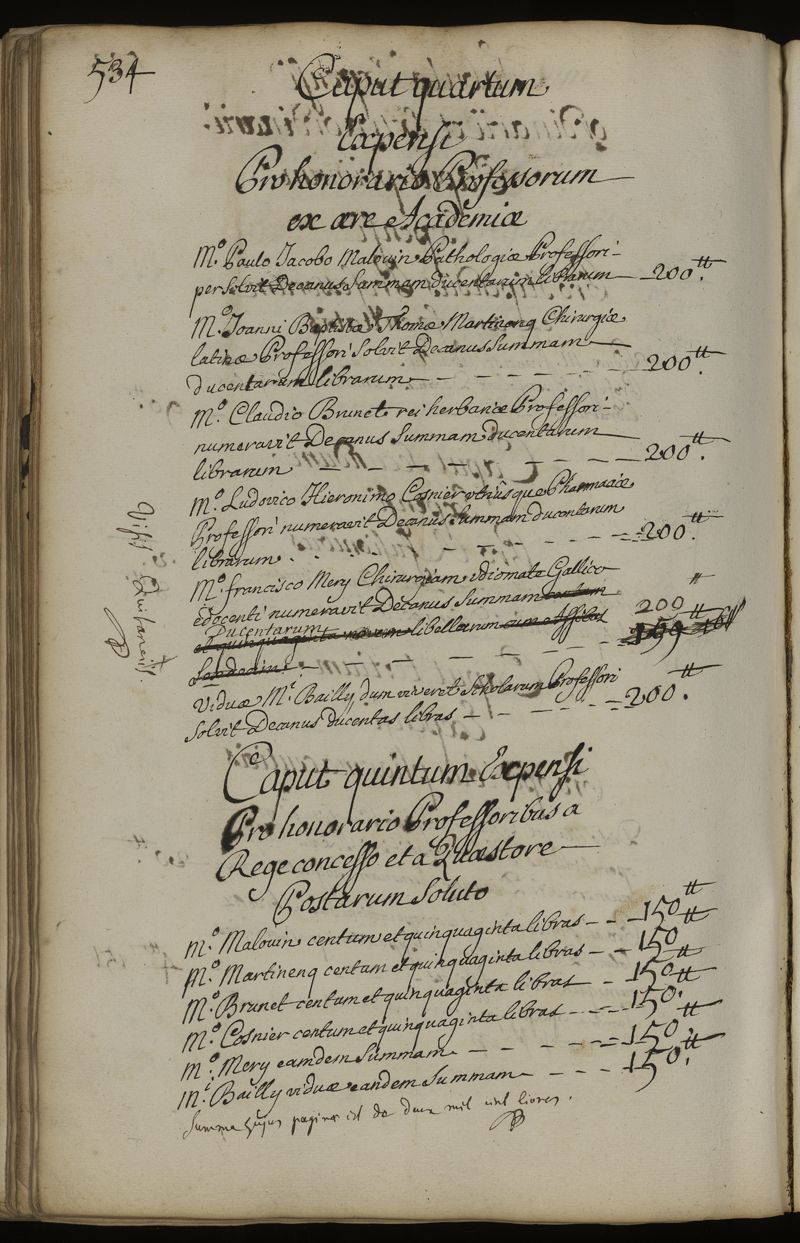 534
Caput quartum
Expensi
Pro honorario Professorum
ex ære Academiæ
M.º Paulo Jacobo Malouin Pathologiæ Professori
persolvit Decanus Summam ducentarum librarum — 200.tt
M.º Joanni Baptistæ Thomæ Martinenq Chirurgiæ
latinæ Professori Solvit Decanus Summam
ducentarum librarum — 200.tt
M.º Claudio Brunet rei herbariæ Professori
numeravit Decanus Summam ducentarum
librarum — 200.tt
M.º Ludovico Hieronimo Cosnier utriusque Pharmaciæ
Professori numeravit Decanus Summam ducentarum
librarum — 200.tt
M.º francisco Mery Chirurgiam idiomate Gallico
edocenti numeravit Decanus Summam centum
Ducentarum
et quinquaginta novem libellarum cum assibus 200tt
Sexdecim 159tt 16ſ
Viduæ M.i Bailly dum viveret Scholarum Professori
Solvit Decanus ducentas libras — 200.tt
Visis Quitanciis
Caput quintum Expensi
Pro honorario Professoribus a
Rege concesso et a Quæstore
Postarum Soluto
M.º Malouin centum et quinquaginta libras — 150tt
M.º Martinenq centum et quinquaginta libras — 150tt
M.º Brunet centum et quinquaginta libras — 150tt
M.º Cosnier centum et quinquaginta libras — 150.tt
M.º Mery eamdem Summam — 150.tt
M.i Bailly viduæ eandem Summam — 150.tt
Summa hujus paginæ est de deux mil cent livres.